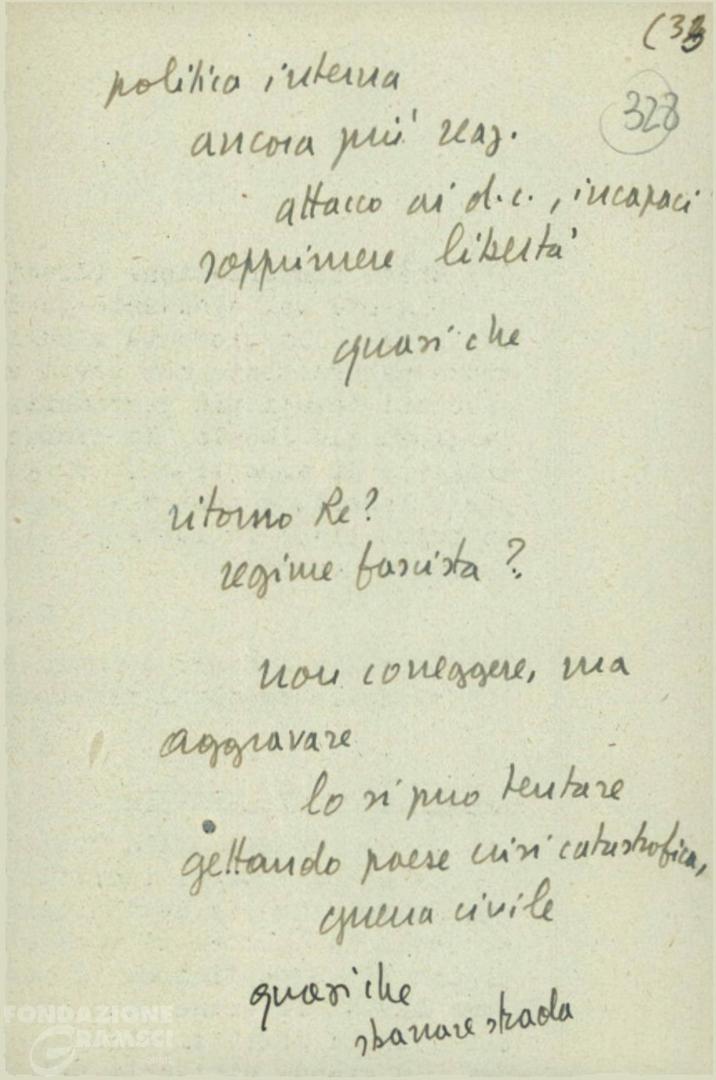 (33
328
politica interna
ancora più reaz.
attacco ai d.c., incapaci
sopprimere libertà
quasi che
ritorno Re?
regime fascista?
non correggere, ma
aggravare
lo si può tentare
gettando paese crisi catastrofica,
guerra civile
quasi che
sbarrare strada
FONDAZIONE
GRAMSCI